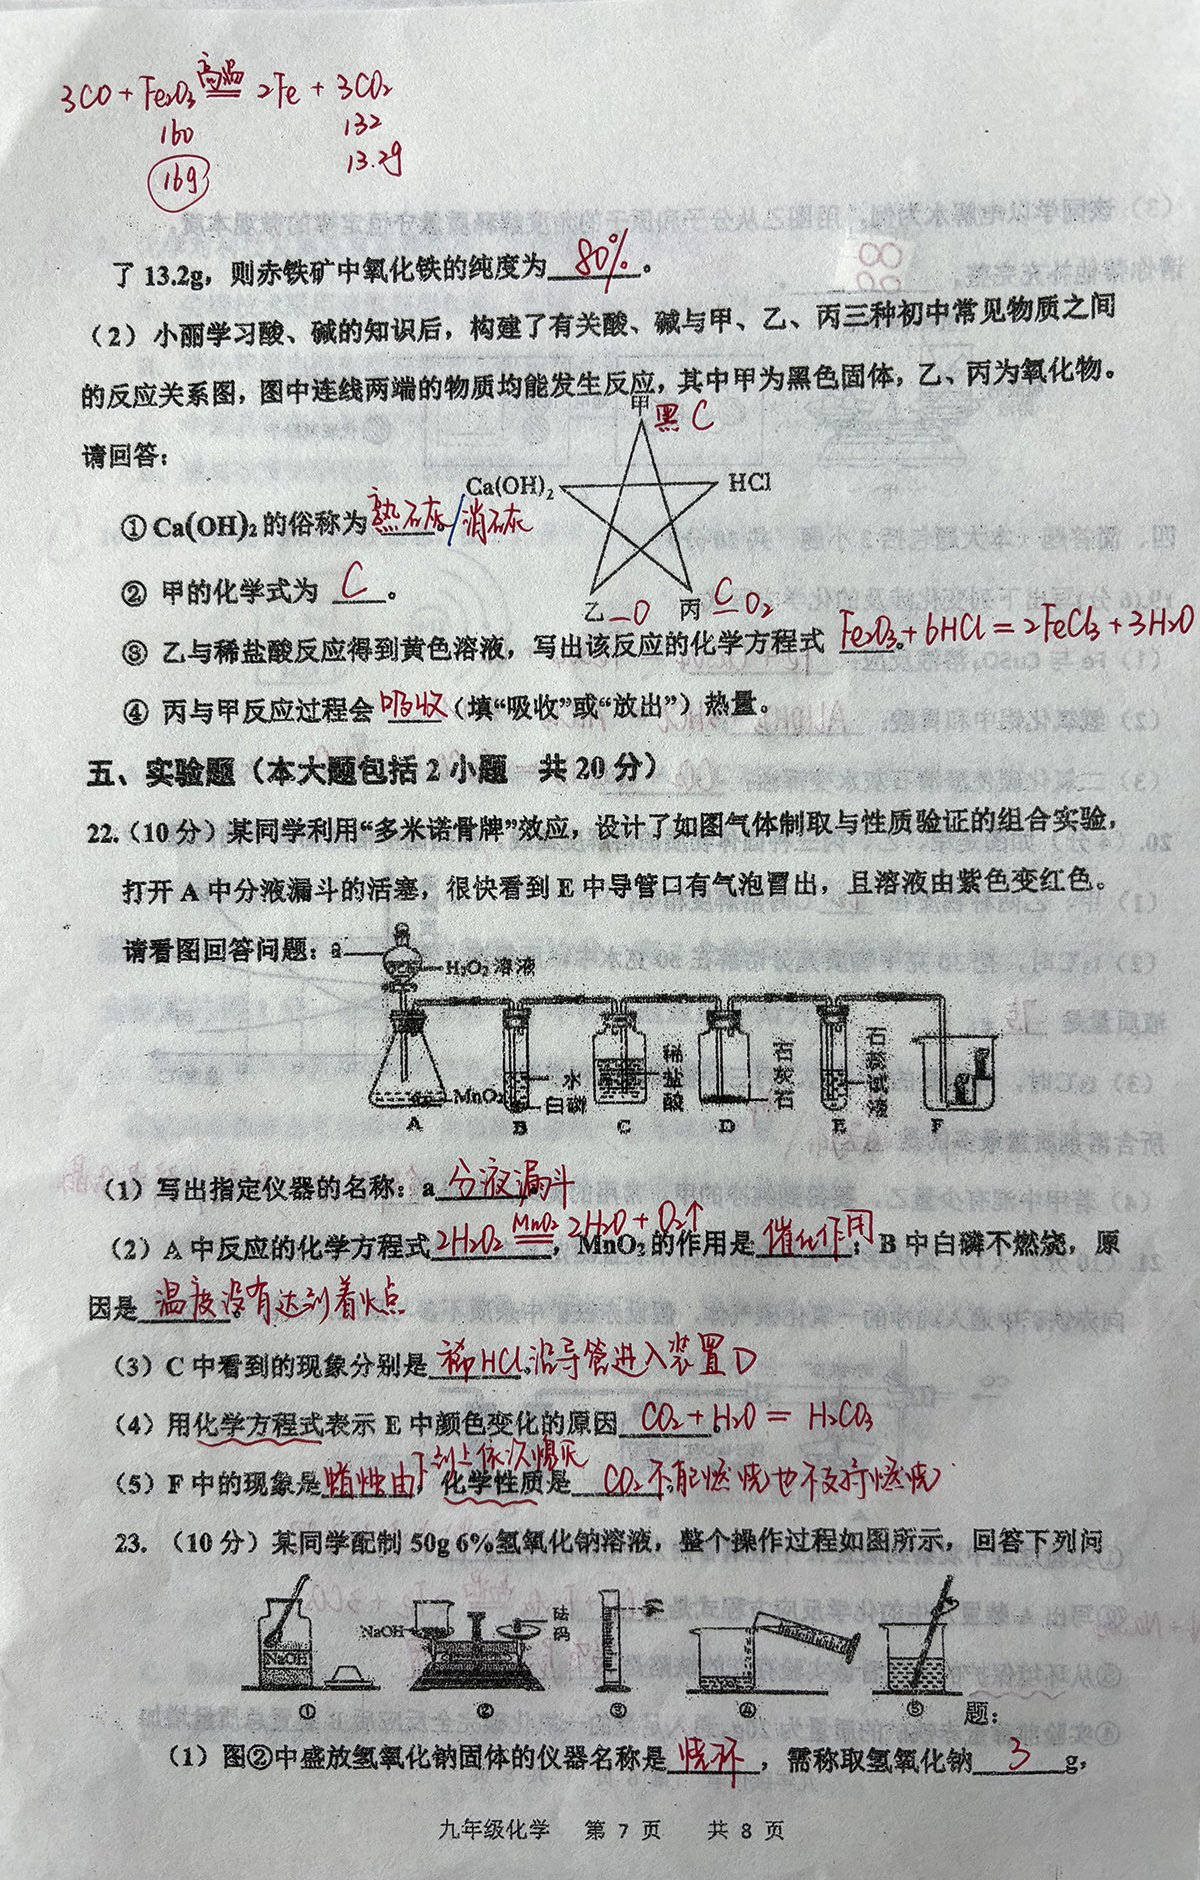 3CO + Fe₂O₃ 高温 2Fe + 3CO₂
160 132
16g 13.2g
了 13.2g，则赤铁矿中氧化铁的纯度为 80% 。
（2）小丽学习酸、碱的知识后，构建了有关酸、碱与甲、乙、丙三种初中常见物质之间
的反应关系图，图中连线两端的物质均能发生反应，其中甲为黑色固体，乙、丙为氧化物。
甲 黑 C
请回答：
Ca(OH)₂ HCl
① Ca(OH)₂ 的俗称为 熟石灰/消石灰
② 甲的化学式为 C 。
乙 _O 丙 CO₂
③ 乙与稀盐酸反应得到黄色溶液，写出该反应的化学方程式 Fe₂O₃+6HCl=2FeCl₃+3H₂O 。
④ 丙与甲反应过程会 吸收 （填“吸收”或“放出”）热量。
五、实验题（本大题包括 2 小题 共 20 分）
22.（10 分）某同学利用“多米诺骨牌”效应，设计了如图气体制取与性质验证的组合实验，
打开 A 中分液漏斗的活塞，很快看到 E 中导管口有气泡冒出，且溶液由紫色变红色。
请看图回答问题：a
H₂O₂ 溶液
MnO₂ 水 白磷 稀盐酸 石灰石 石蕊试液
A B C D E F
（1）写出指定仪器的名称：a 分液漏斗
（2）A 中反应的化学方程式 2H₂O₂ MnO₂ 2H₂O+O₂↑ ，MnO₂ 的作用是 催化作用 ；B 中白磷不燃烧，原
因是 温度没有达到着火点 。
（3）C 中看到的现象分别是 稀HCl沿导管进入装置D 。
（4）用化学方程式表示 E 中颜色变化的原因 CO₂+H₂O=H₂CO₃ 。
（5）F 中的现象是 蜡烛由下到上依次熄灭 ，化学性质是 CO₂不能燃烧也不支持燃烧 。
23. （10 分）某同学配制 50g 6%氢氧化钠溶液，整个操作过程如图所示，回答下列问
NaOH NaOH 砝码
① ② ③ ④ ⑤ 题：
（1）图②中盛放氢氧化钠固体的仪器名称是 烧杯 ，需称取氢氧化钠 3 g，
九年级化学 第 7 页 共 8 页